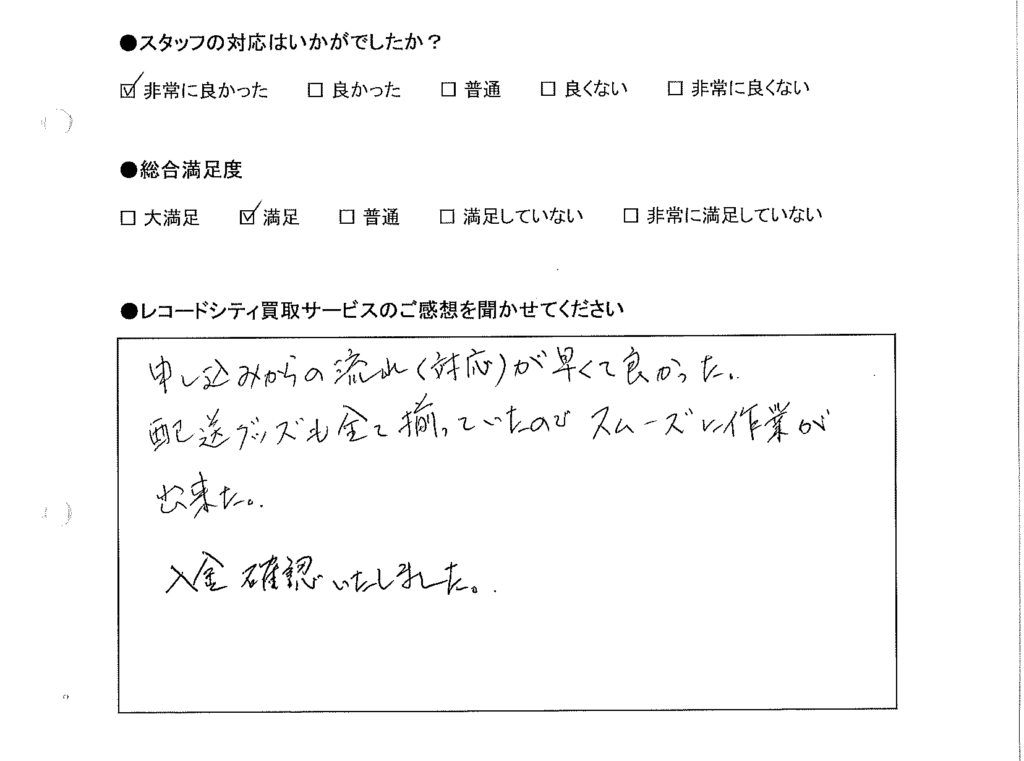 ●スタッフの対応はいかがでしたか？
☑ 非常に良かった □ 良かった □ 普通 □ 良くない □ 非常に良くない
●総合満足度
□ 大満足 ☑ 満足 □ 普通 □ 満足していない □ 非常に満足していない
●レコードシティ買取サービスのご感想を聞かせてください
申し込みからの流れ(対応)が早くて良かった。
配送グッズも全て揃っていたのでスムーズに作業が
出来た。
入金確認いたしました。